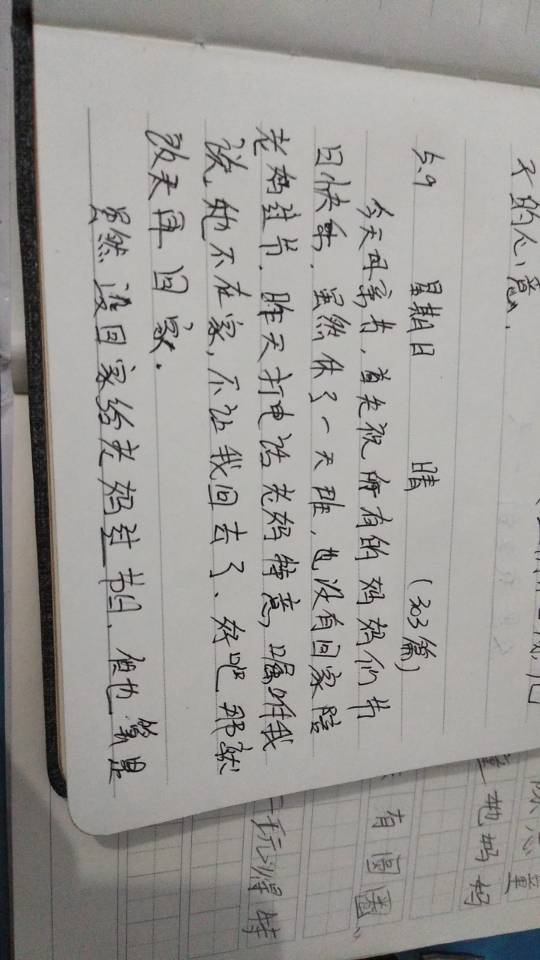 大的人意.
5.9 星期日 晴 (303篇)
今天母亲节,首先祝所有的妈妈们节
日快乐,虽然休了一天班,也没有回家陪
老妈过节,昨天打电话老妈特意嘱咐我
说,她不在家,不让我回去了、好吧那就
改天再回家.
虽然没回家给老妈过节日、但也算是
量
她妈妈
有圆圈"
一玩得特